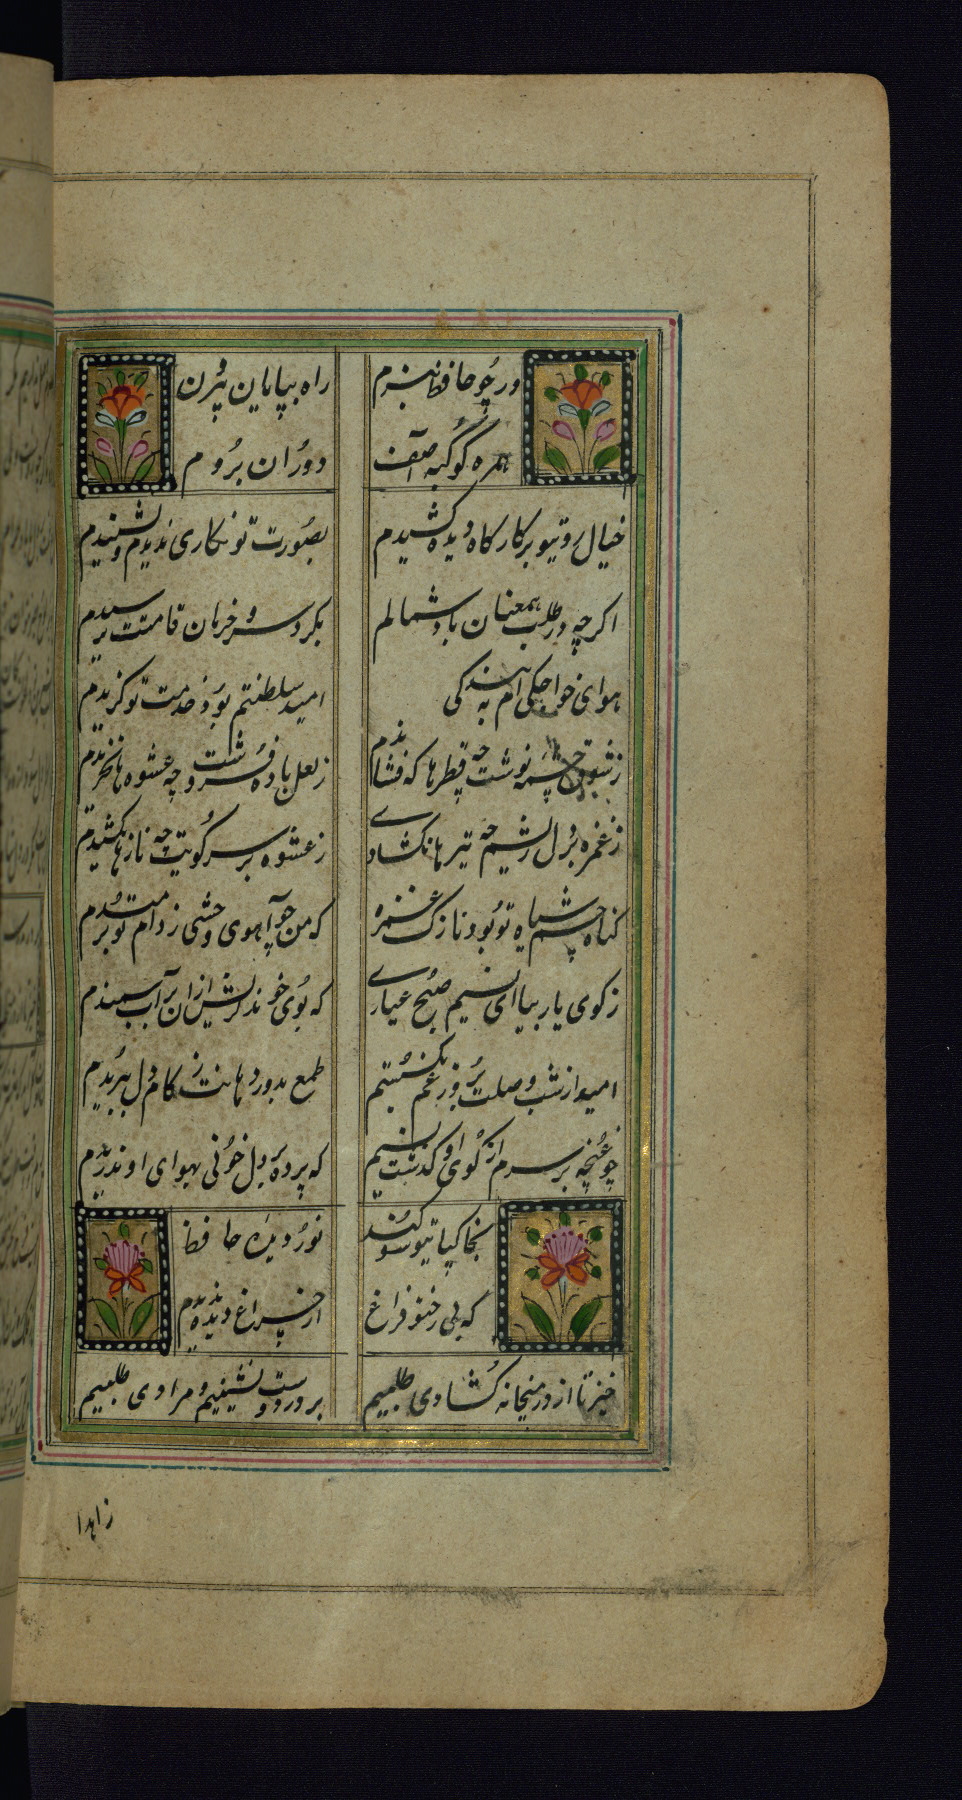 ور چو حافظ نبرم راه بپایان بیرون
همره کوکبه آصف دوران بروم
خیال روتیو بر کارکاه دیده کشیدم بصورت تو نکاری ندیدم و نشنیدم
اکرچه در طلب همعنان باد شمالم بکرد سرو خرمان قامتت نرسیدم
هوای خواجکی ام بندکی امید سلطنتم بود خدمت تو کزیدم
ز شوق چشمه نوشت چه قطرها که فشاندم ز لعل باده فروشت چه عشوه ها نخریدم
ز غمزه بر دل ریشم چه تیرها نکشادی ز عشوه بر سر کویت چه نازها نکشیدم
کناه چشم سیاه تو بود نازک غمزه که من چو آهوی وحشی ز دام تو برمیدم
ز کوی یار بیا ای نسیم صبح عیاری که بوی خون دل ریش از ان
امید از شب وصلت بروز غم طمع بدور دهانت ز کام دل ببریدم
چو غنچه بر سرم از کوی او کذشت نسیم که پرده بر دل خونی بهوای او ندریدم
بخاکپاتیو سوکند نور دیده حافظ
که بی رخنو فراغ از چراغ دیده ندیدم
خیز تا از در میخانه کشادی طلبیم بر در دوست نشینیم و مرادی طلبیم
زاهدا